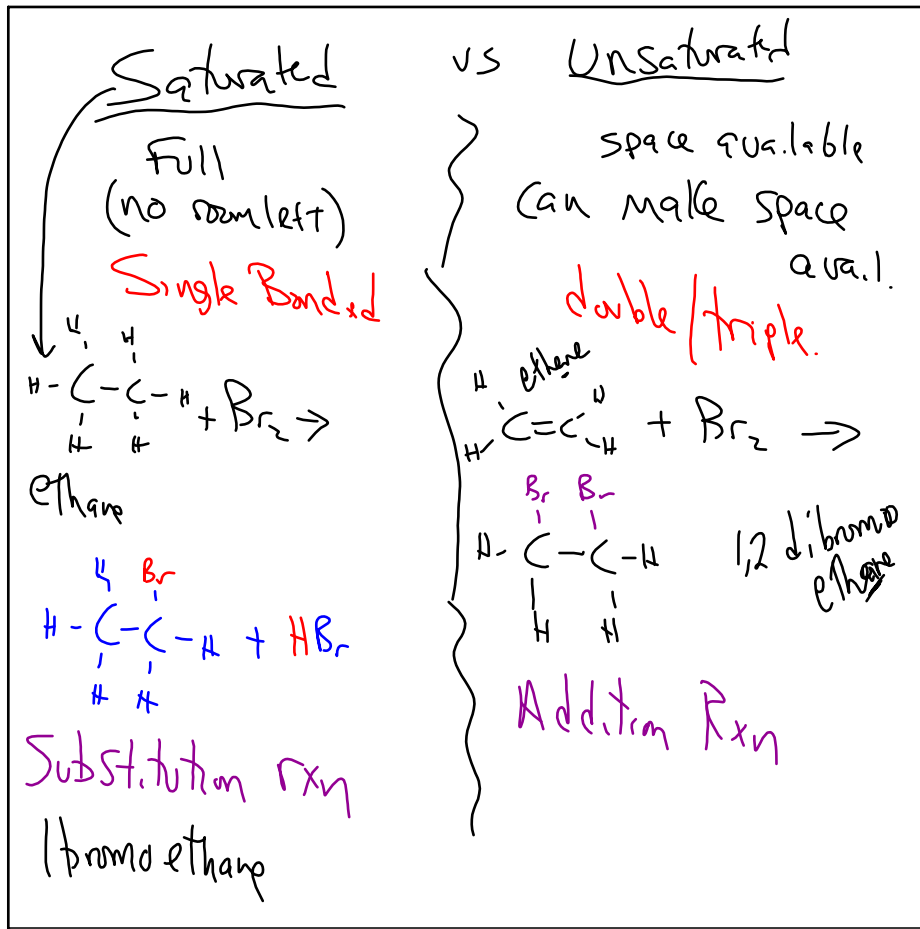 Saturated vs Unsaturated
Full
(no room left)
Single Bonded
H H
H - C - C - H + Br2 →
H H
ethane
H Br
H - C - C - H + HBr
H H
Substitution rxn
1bromoethane
space available
can make space
avail.
double/triple.
ethene
H H
H C=C H + Br2 →
Br Br
H - C - C - H
H H
1,2 dibromo
ethane
Addition Rxn